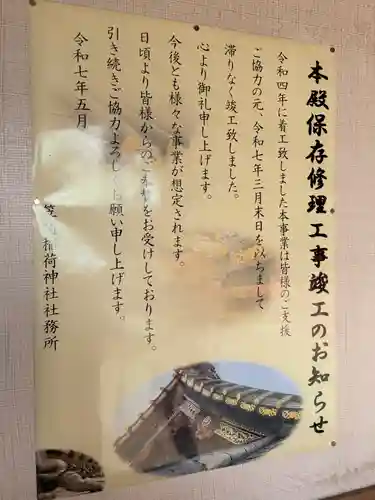 本殿保存修理工事竣工のお知らせ
令和四年に着工致しました本事業は皆様のご支援
ご協力の元、令和七年三月末日を以ちまして
滞りなく竣工致しました。
心より御礼申し上げます。
今後とも様々な事業が想定されます。
日頃より皆様からのご をお受けしております。
引き続きご協力よろし 願い申し上げます。
令和七年五月
笠 稲荷神社社務所